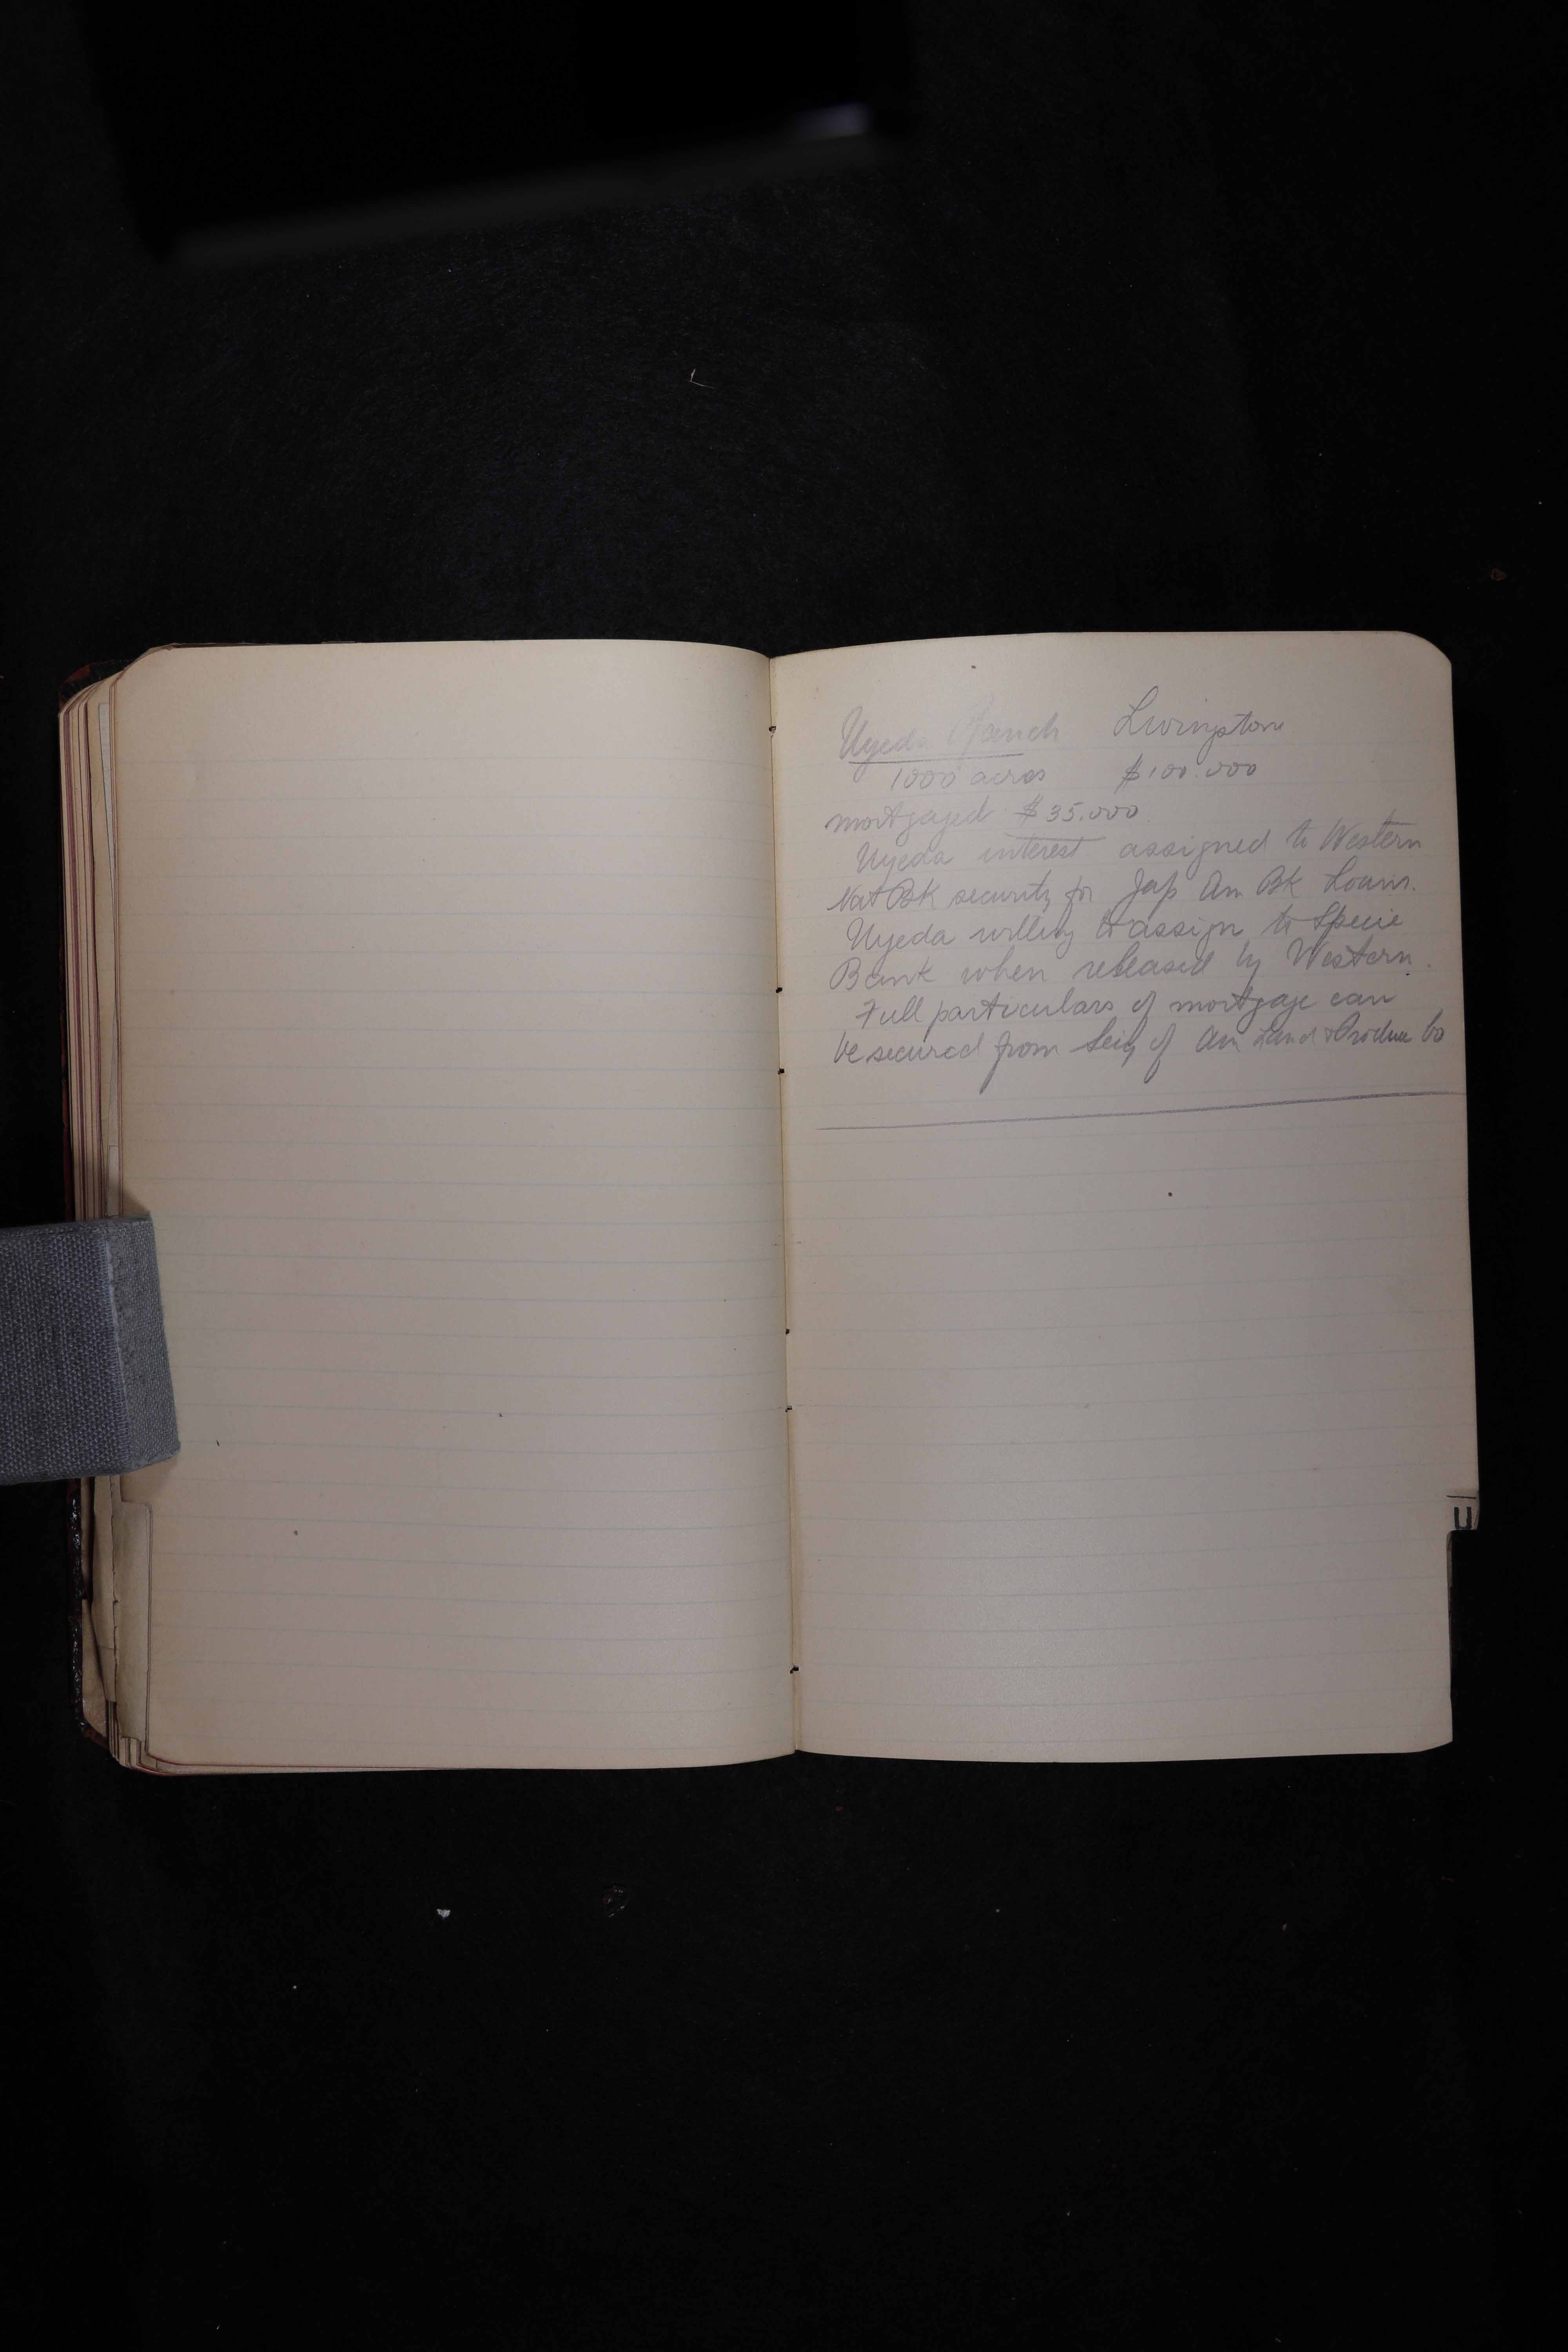 Uyeda Ranch Livingston
1000 acres $100.000
mortgaged $35.000
Uyeda interest assigned to Western
Nat Bk security for Jap Am Bk Loans.
Uyeda willing to assign to Specie
Bank when released by Western.
Full particulars of mortgage can
be secured from Secy of Am Land & Produce Co
U